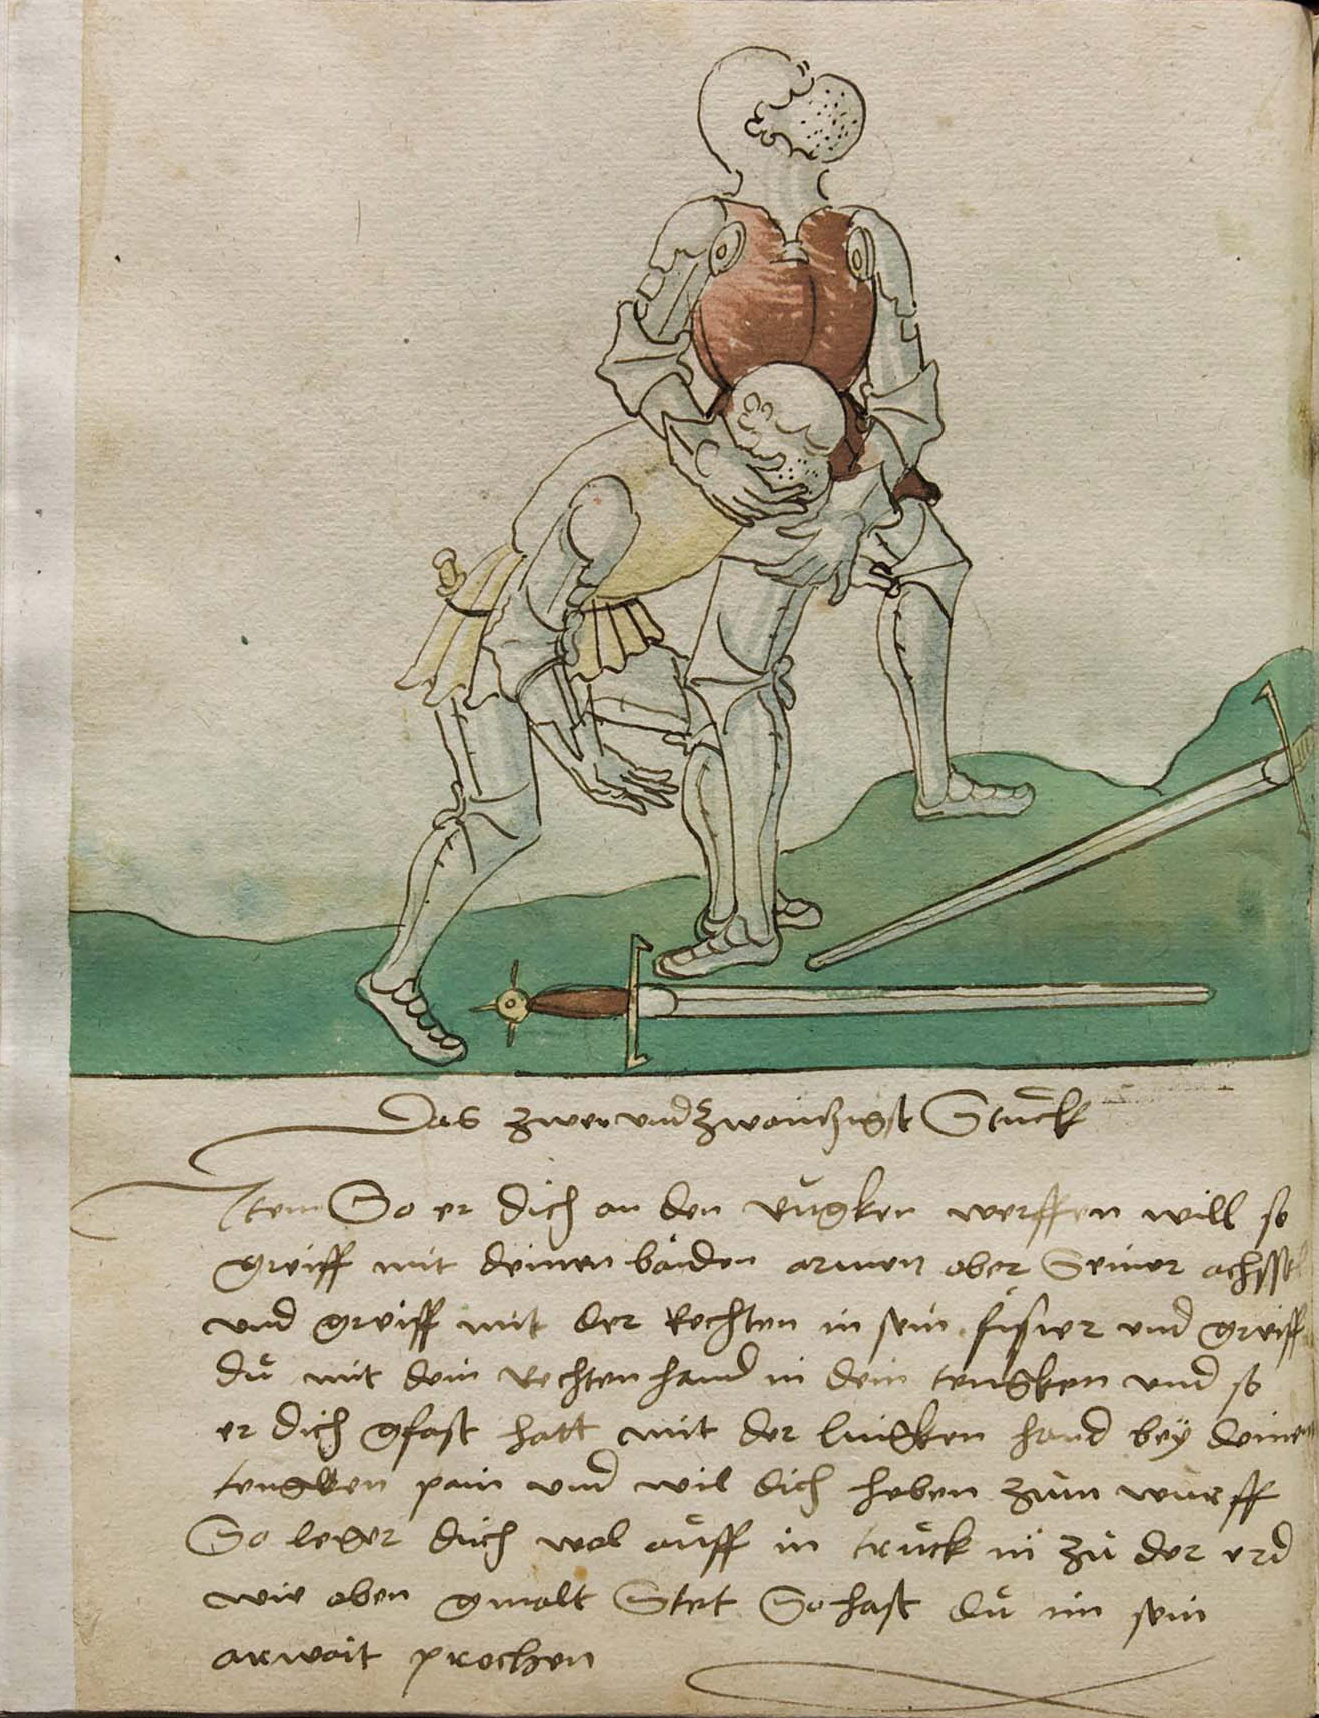 Das zwei und zwantzigst Stuckh
Item So er dich an den rugken werffen will so
greiff mit deinen baiden armen ober Seiner achssel
und greiff mit der Rechten in sein fisier und greiff
du mit dein rechten hand in dein tengken und so
er dich gfast hatt mit der lingken hand bey deinem
tengken pain und wil dich heben zum wurff
So leger dich wol auff in truck in zu der erd
wie oben gmalt Stet So hast du im sein
arwait prochen